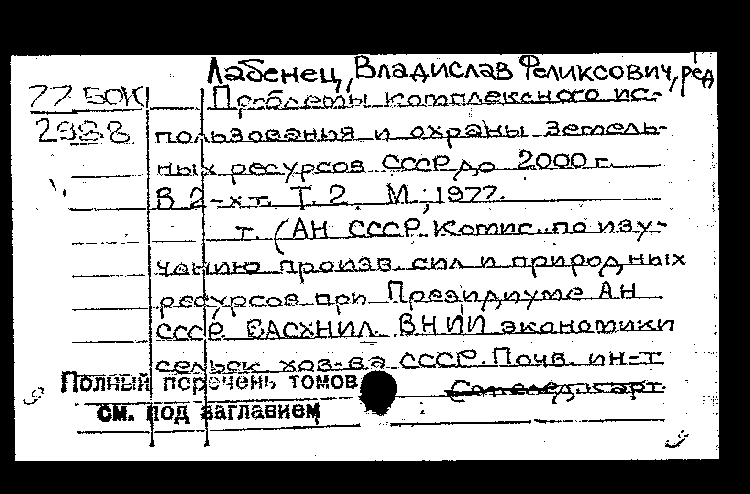 Лабенец, Владислав Феликсович, ред
77 50К Проблемы комплексного ис-
2988 пользования и охраны земель-
ных ресурсов СССР до 2000 г.
В 2-х т. Т. 2. М., 1977.
т. (АН СССР. Комис. по изу-
чению произв. сил и природных
ресурсов при Президиуме АН
СССР. ВАСХНИЛ. ВНИИ экономики
сельск. хоз-ва СССР. Почв. ин-т
Полный перечень томов
см. под заглавием